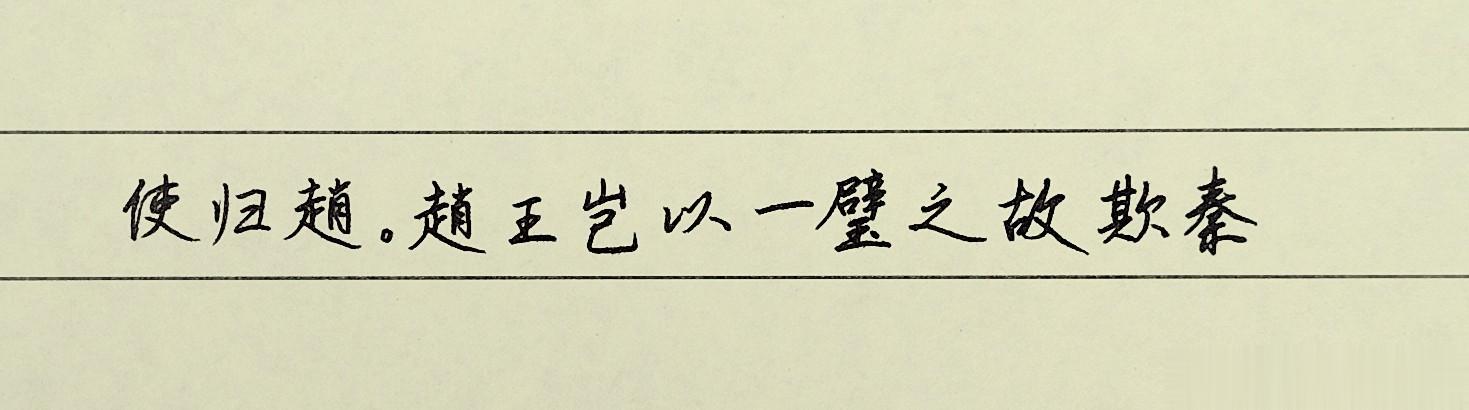 使归趙。趙王岂以一璧之故欺秦